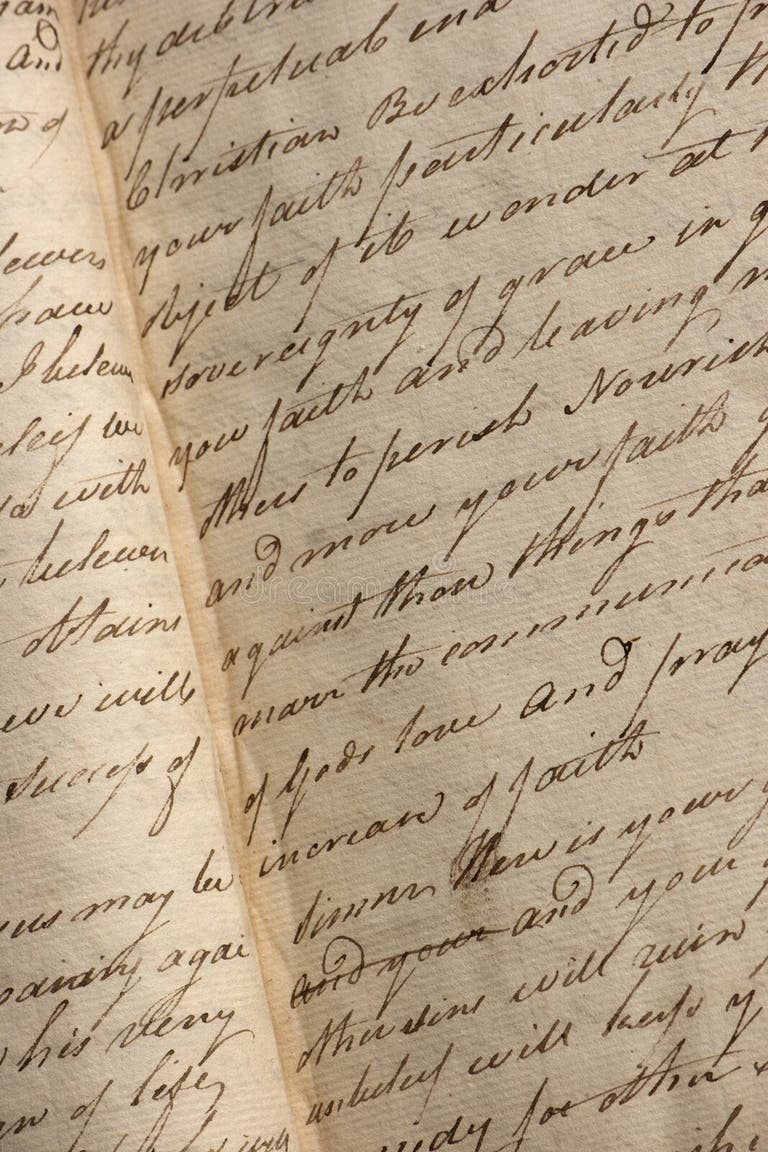 and
of
have
I beleive
beleif we
with
beleiver
obtains
we will
success of
us may be
again
his very
of life
a perpetual end
Christian Be exhorted to
your faith particularly
object of it wonder at
sovereignty of grace in
you faith and leaving
others to perish Nourish
and more your faith
against those things tha
marr the communica
of Gods love and pray
increase of faith
sinner there is your
and your and your
other sins will ruin
unbeleif will keep y
for other